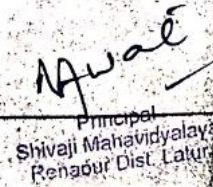 Principal
Shivaji Mahavidyalay
Renapur Dist. Latur